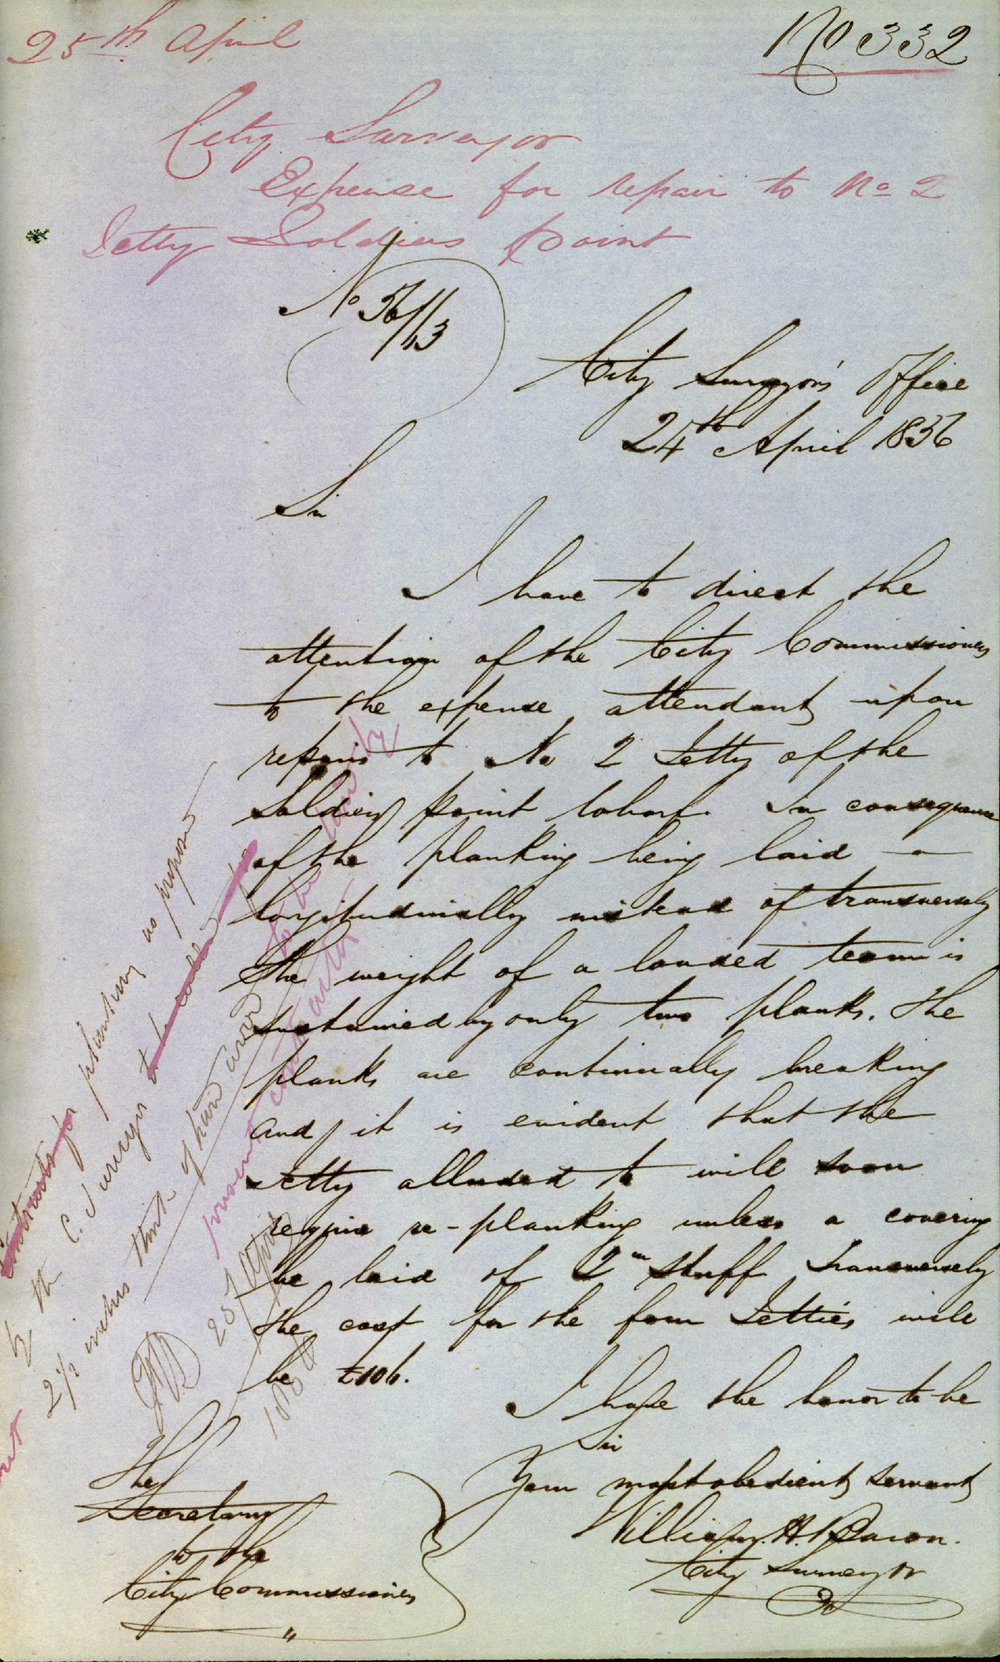 25th April
No 332
City Surveyor
Expense for repair to No 2
Jetty Soldiers Point
No 56/113
City Surveyor's Office
24th April 1856
Sir
I have to direct the
attention of the City Commissioners
to the expense attendant upon
repairs to No 2 Jetty of the
Soldiers point Wharf. In consequence
of the planking being laid
longitudinally instead of transversely
the weight of a loaded team is
sustained by only two planks. The
planks are continually breaking
and it is evident that the
Jetty alluded to will soon
require re-planking unless a covering
be laid of 2 in stuff Transversely
the cost for the four Jetties will
be £106.
I have the honor to be
Sir
Your most obedient servant
City Surveyor
The
Secretary
to the
City Commissioners
planking as proposed
by the C. Surveyor
2 1/2 inches thick of hard wood
present contractor
28 April
1856